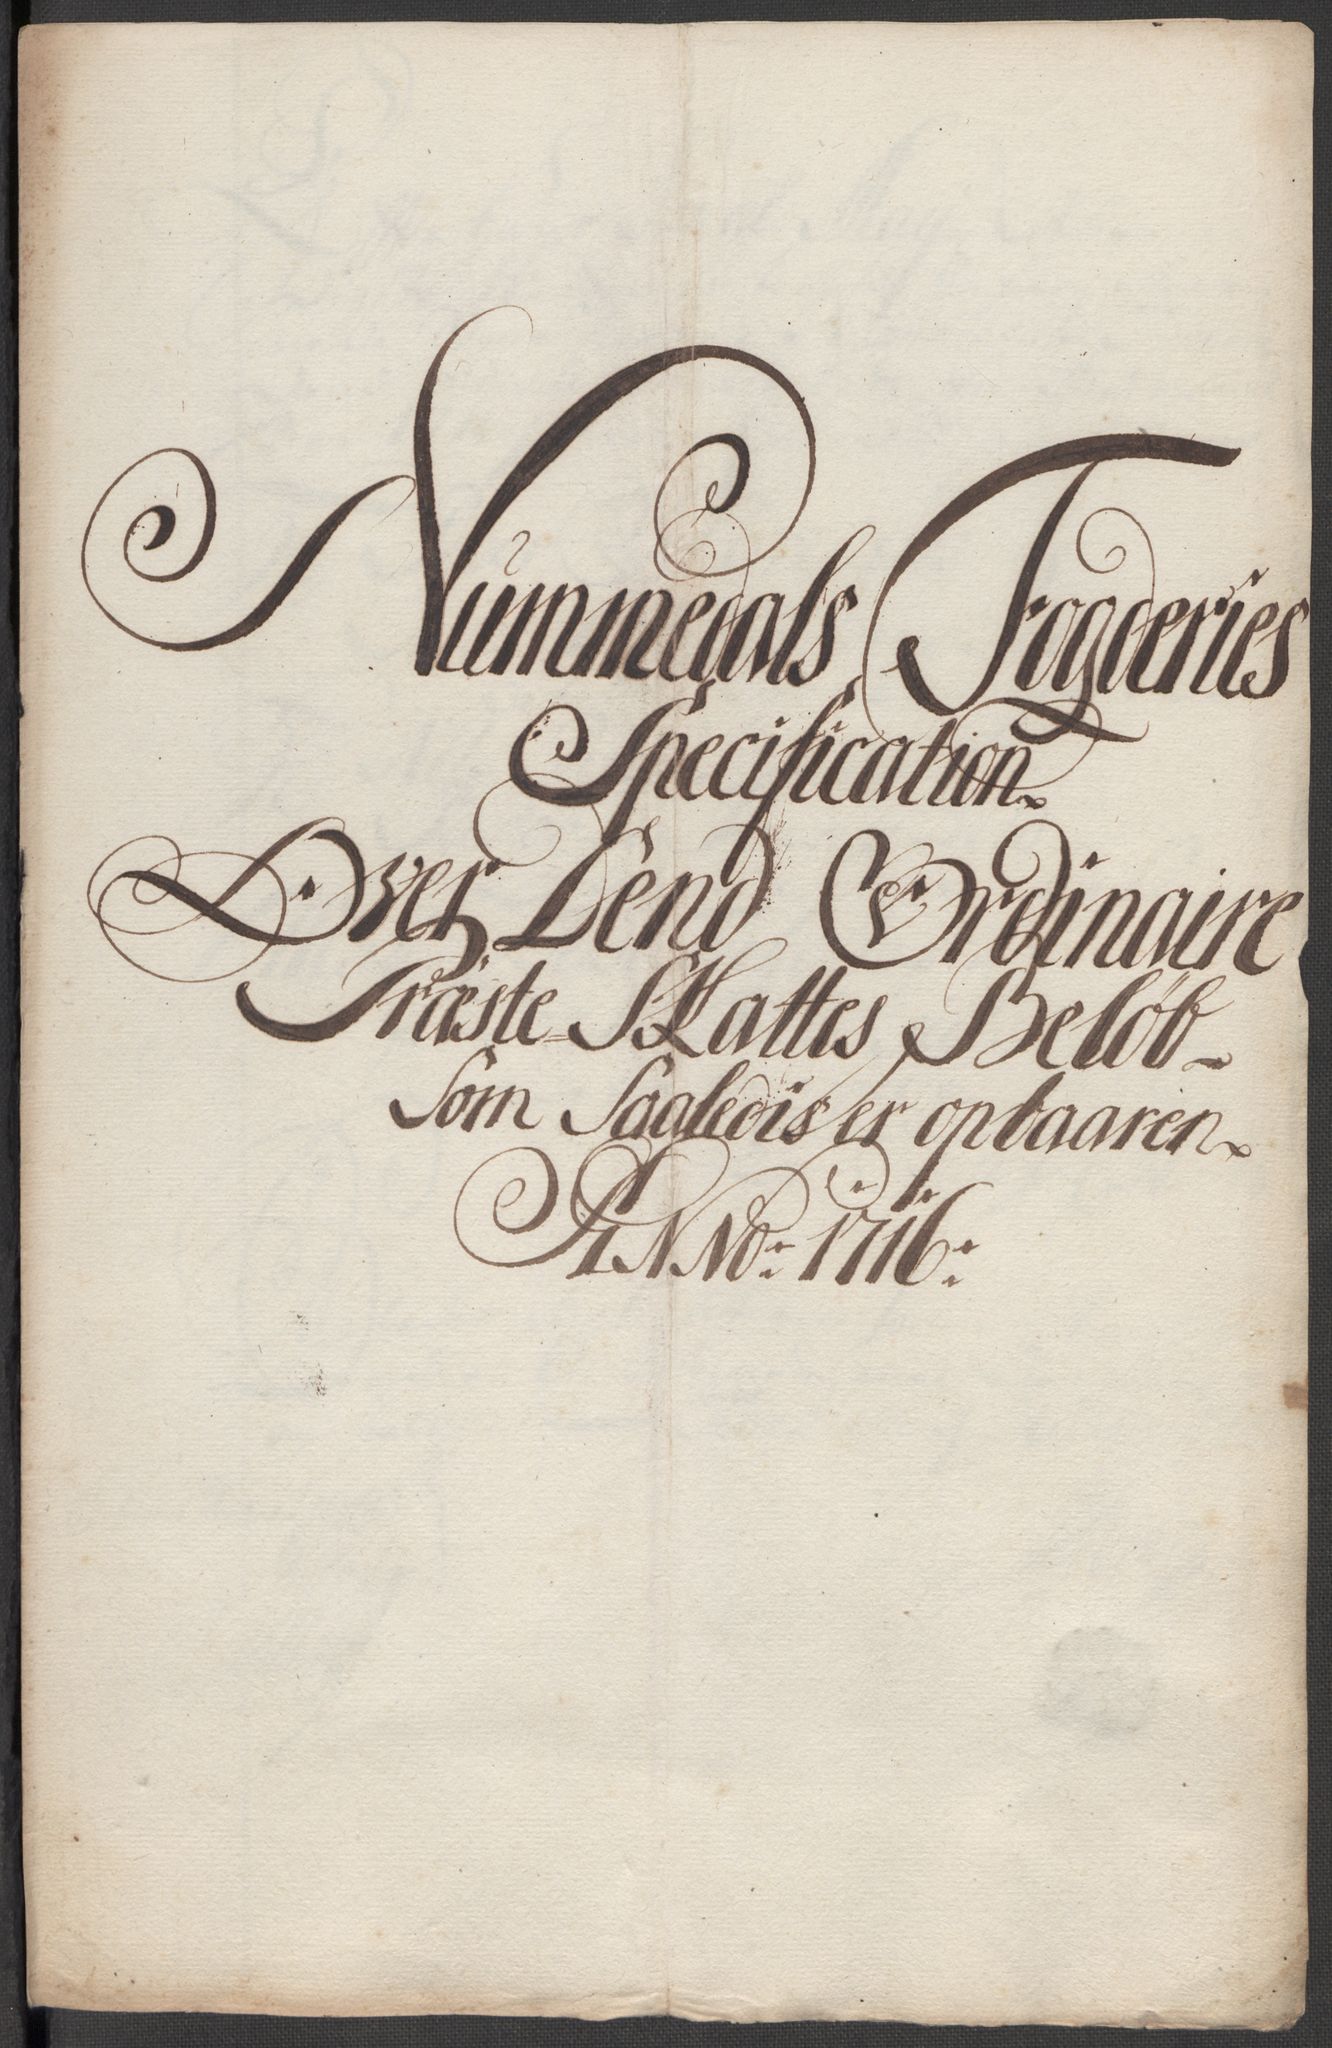 Nummedals Fogderies
Specification
Over Dend Ordinaire
Præste Skattes Beløb
Som Saaledis er opbaaren
ANNO: 1716: